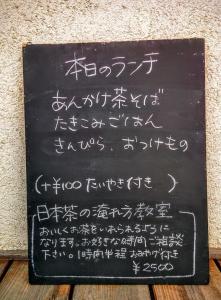 本日のランチ
あんかけ茶そば
たきこみごはん
きんぴら おつけもの
(+¥100 たいやき付き)
日本茶の淹れ方教室
おいしくお茶をいれられるように
なります。お好きな時間ご相談
下さい。1時間半程 おやつ付き
¥2500